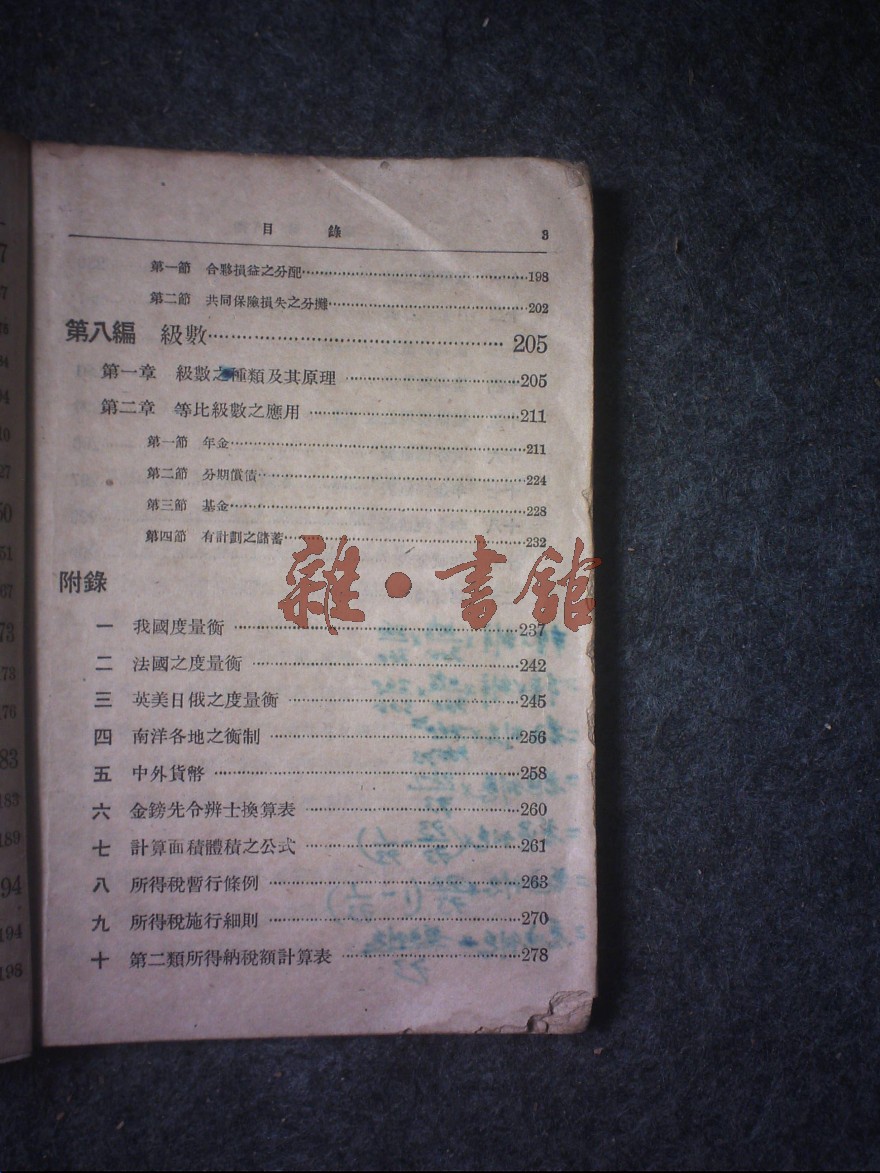 目 錄 3
第一節 合夥損益之分配 198
第二節 共同保險損失之分攤 202
第八編 級數 205
第一章 級數之種類及其原理 205
第二章 等比級數之應用 211
第一節 年金 211
第二節 分期償債 224
第三節 基金 228
第四節 有計劃之儲蓄 232
雜・書館
附錄
一 我國度量衡 237
二 法國之度量衡 242
三 英美日俄之度量衡 245
四 南洋各地之衡制 256
五 中外貨幣 258
六 金鎊先令辨士換算表 260
七 計算面積體積之公式 261
八 所得稅暫行條例 263
九 所得稅施行細則 270
十 第二類所得納稅額計算表 278